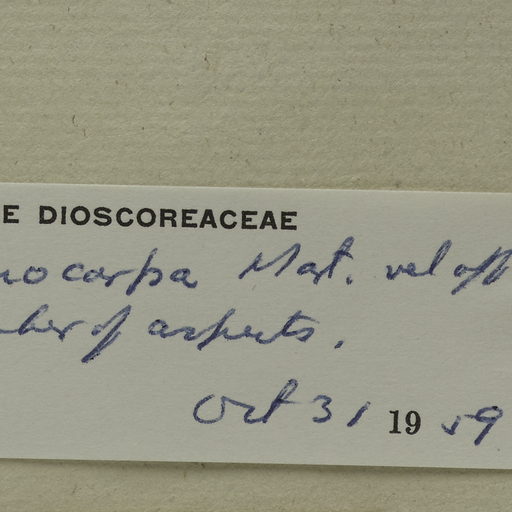 E DIOSCOREACEAE
nocarpa Mart. vel aff
mber of aspects.
Oct 31 1959